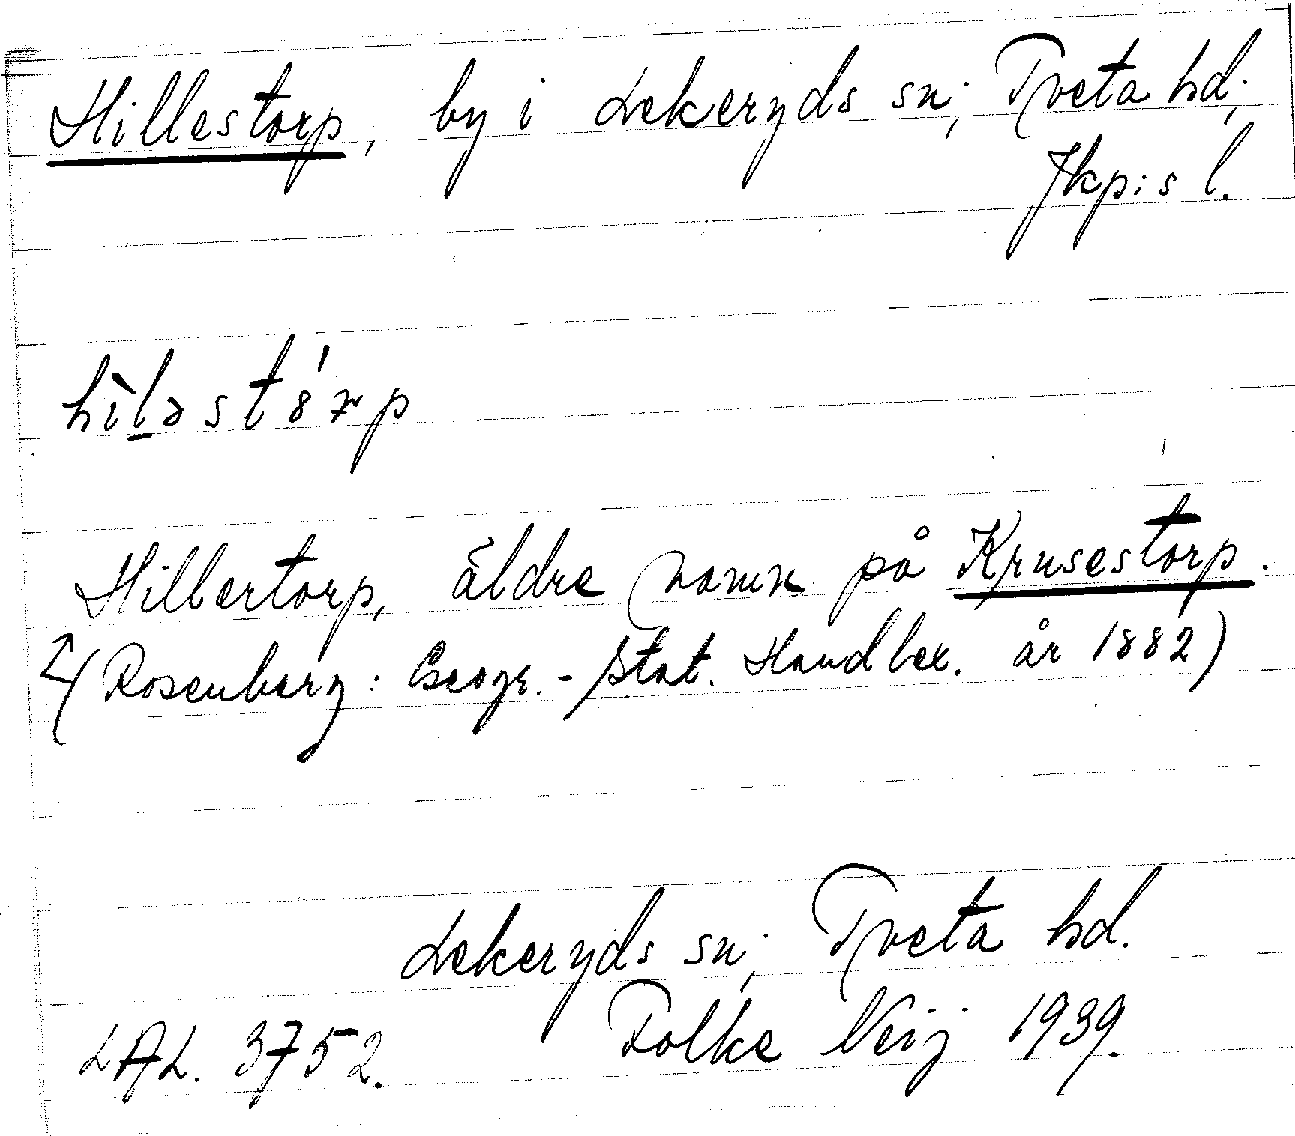 Hillestorp, by i Lekeryds sn; Tveta hd;
Jkp:s l.
hìləstórp
Hillertorp, äldre namn på Krusestorp.
(Rosenberg: Geogr.-Stat. Handlex. år 1882)
Lekeryds sn; Tveta hd.
LAL. 3752. Folke Neij 1939.